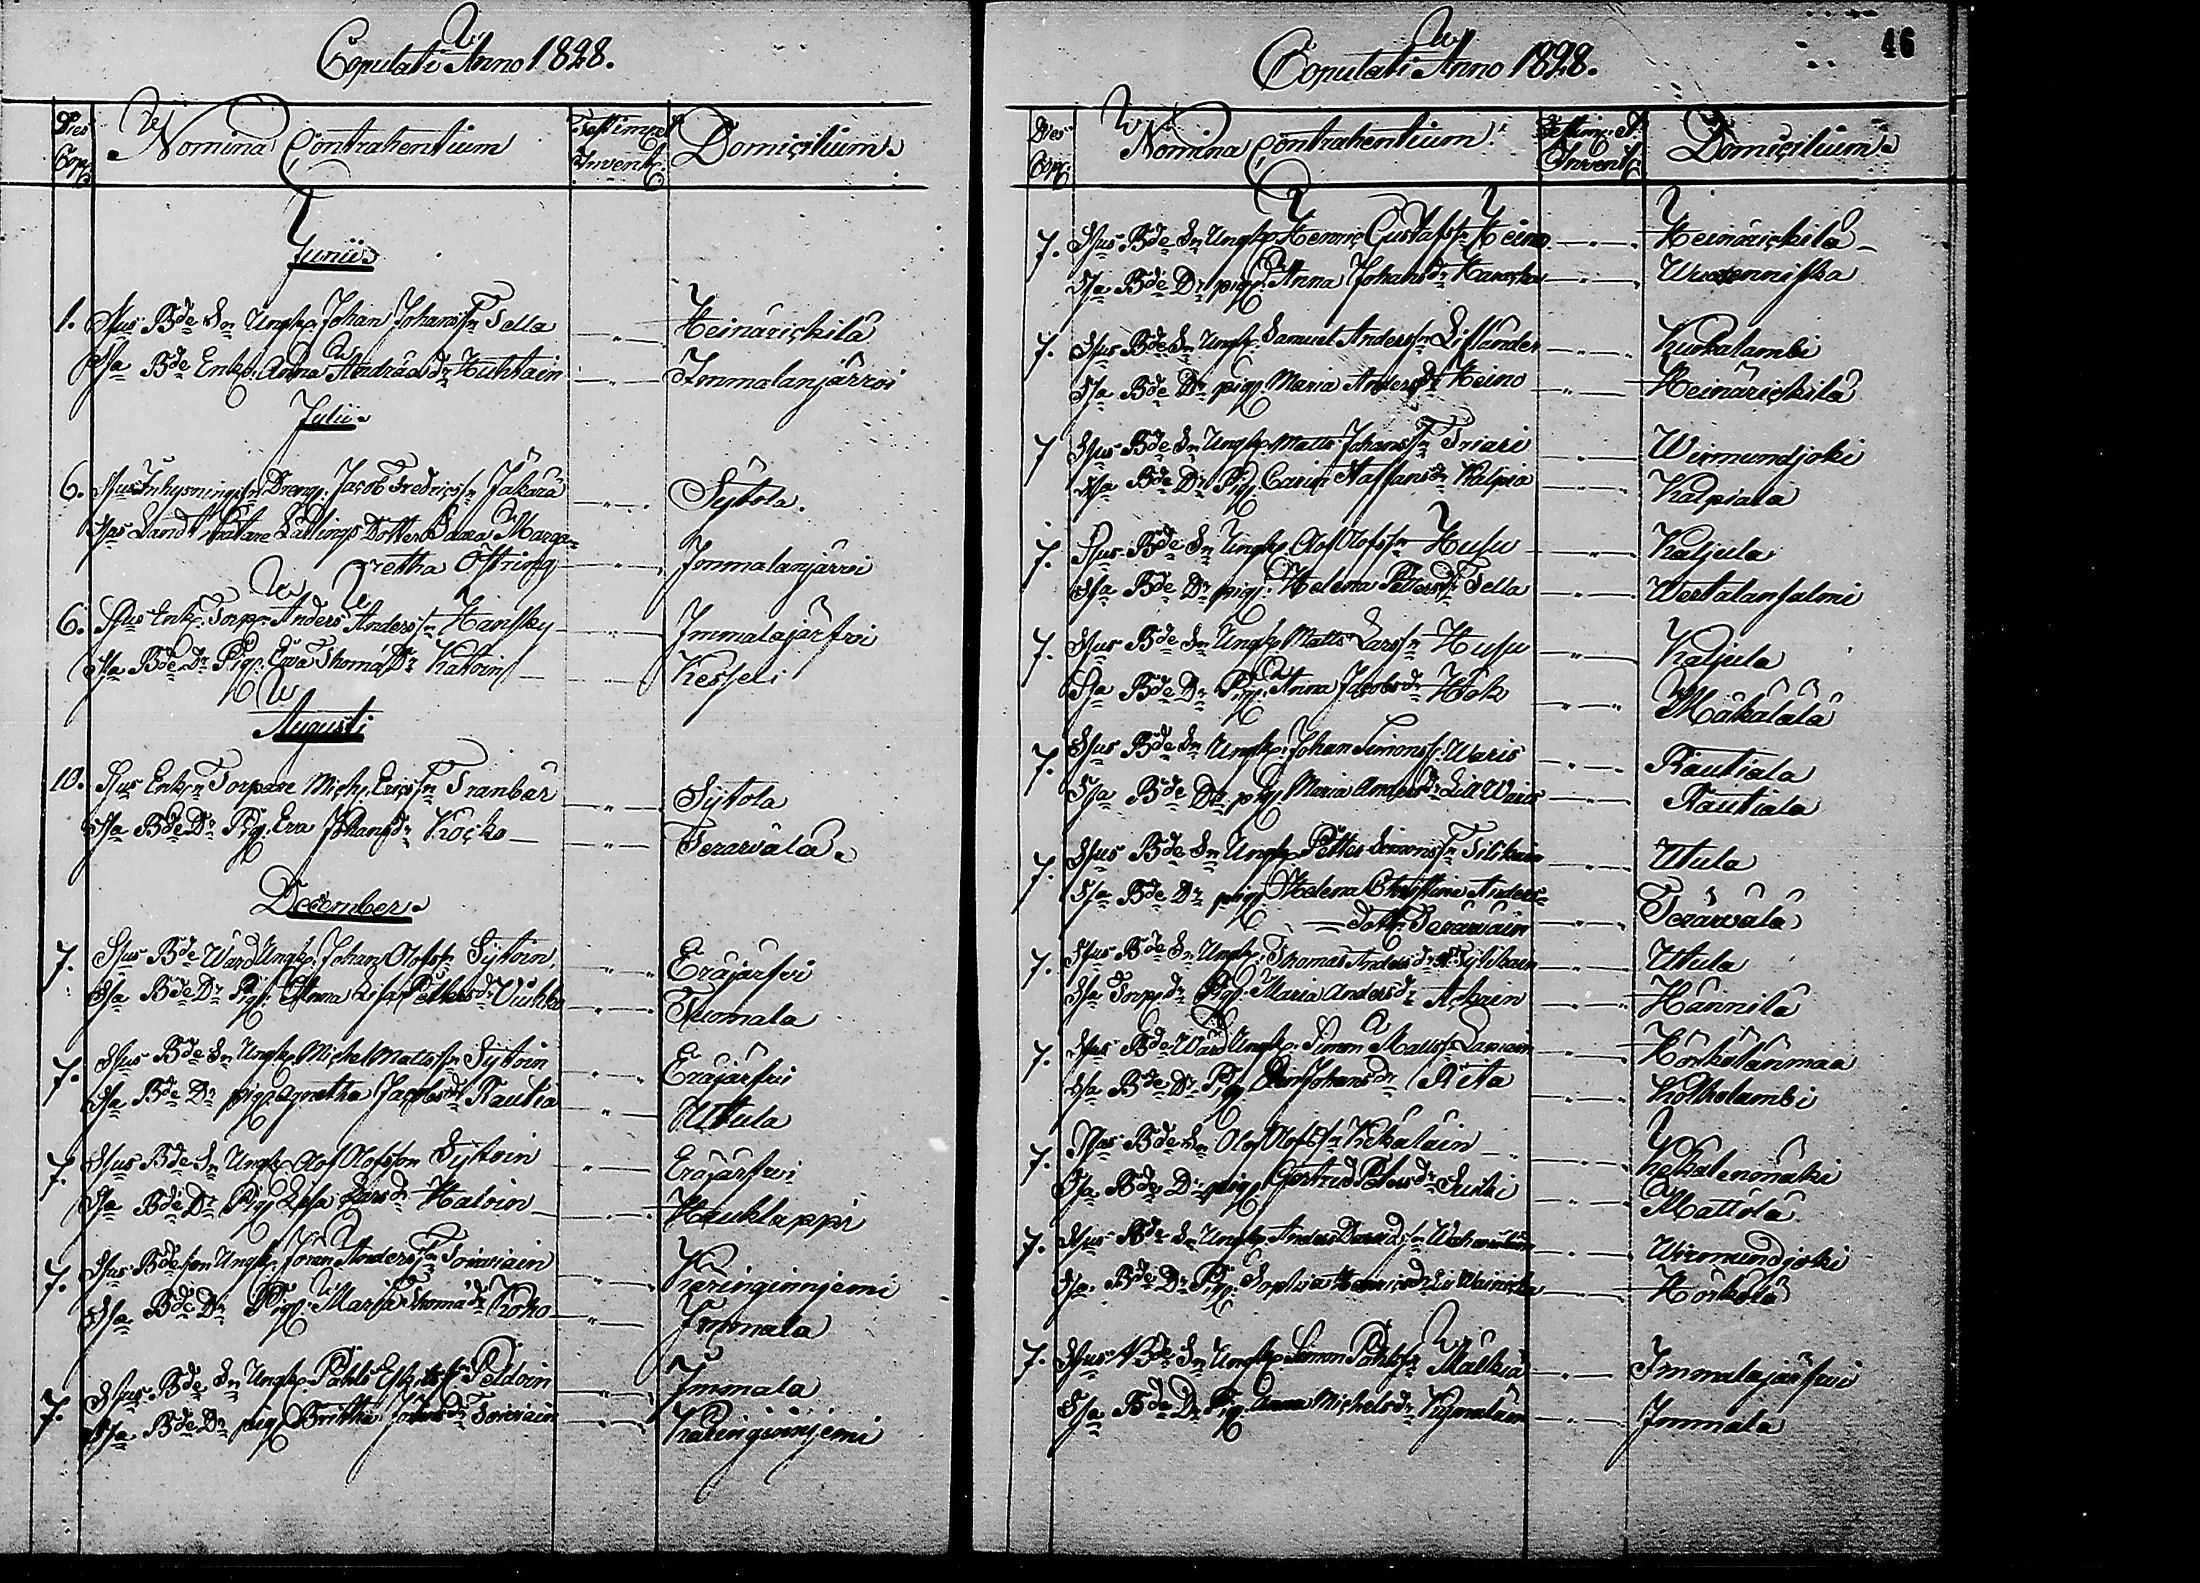 Copulati Anno 1828.
Dies Cop: Nomina Contrahentium Testim: et Invent: Domicilium.
Junii.
1. Sps Bde Sn Ungk. Johan Johansn Tella Heinärickilä
Spa Bde Enk. Anna Andräsdr Huhtain Immalanjärvi
Julii.
6. Sps Inhysnings Dreng. Jacob Fredricsn Jäkärä Sÿtola.
Spa Land Lättings Dotter Marga-
retha Östring Immalanjärvi
6. Sps Enk. Torpr Anders Anderssn Hansky Immalajärfvi
Spa Bde Dr Pig. Ewa Thomä Dr Kattvin Kesseli
Augusti
10. Sps Enk. Torpare Mich. Ericssn Tranbär Sÿtola
Spa Bde Dr Pig. Eva Johansdr Kocko Terävälä.
December.
7. Sps Bde Värd Ungk. Johan Olofssn Sÿtvin Eräjärfvi
Spa Bde Dr Pig. Anna Lisa Pettersdr Tuomala
7. Sps Bde Sn Ungk. Michel Mattssn Sÿtvin Eräjärfvi
Spa Bde Dr pig. Agnetha Jacobsdr Rautia Uttula
7. Sps Bde Sn Ungk. Olof Olofsson Sÿtvin Eräjärfvi
Spa Bde Dr Pig. Lisa Larsdr Halvin Hauklappi
7. Sps Bde Son Ungk. Jöran Anderssn Toiviain Käringinnjemi
Spa Bde Dr Pig. Maria Thomädr Koho Immala
7. Sps Bde Sn Ungk. Påhl Peldvin Immala
Spa Bde Dr pig. Britha Johansdr Toiviain Käringinnjemi
46
Copulati Anno 1828.
Dies Cop: Nomina Contrahentium. Testim: et Invent: Domicilium.
7. Sps Bde Sn Ungk. Henric Gustafssn Heino Heinärickilä
Spa Bde Dr pig. Anna Johansdr Wuoxenniska
7. Sps Bde Sn Ungk. Samuel Anderssn Liflander Kurkalambi
Spa Bde Dr pig. Maria Andersdr Heino Heinärickilä
7. Sps Bde Sn Ungk. Matts Johanssn Triari Wirmundjoki
Spa Bde Dr Pig. Carin Staffansdr Kalpia Kalpiala
7. Sps Bde Sn Ungk. Olof Olofssn Husu Kaljula
Spa Bde Dr pig. Helena Pettersdr Tella Wertalansalmi
7. Sps Bde Sn Ungk. Matts Larssn Husu Kaljula
Spa Bde Dr Pig. Anna Jacobsdr Höh Mäkälälä
7. Sps Bde Sn Ungk. Johan Simonssn Waris Rautiala
Spa Bde Dr pig. Maria Andersdr Lill Waris Rautiala
7. Sps Bde Sn Ungk. Petter Simonssn Tilikain Utula
Spa Bde Dr pig. Helena Christina Anders-
Dottr Teräväin Terävälä
7. Sps Bde Sn Ungk. Thomas Tylikain Uttula
Spa Torp. Dr Pig. Maria Andersdr Ackain Hännilä
7. Sps Bde Värd Ungk. Simon Mattssn Laniain Hörkölänmaa
Spa Bde Dr Pig. Johansdr Rita Kotkolambi
7. Sps Bde Sn Olof Olofssn Kekäläin Kekälenmäki
Spa Bde Dr pig. Gertrud Pettersdr Suiki Mattölä
7. Sps Bde Sn Ungk. Anders Davidssn Wirmundjoki
Spa Bde Dr Pig. Sophia Henricsdr Hörkölä
7. Sps Bde Sn Ungk. Simon Påhlssn Mälkiä Immalajärfvi
Spa Bde Dr Pig. Anna Michelsdr Kymäläin Immala